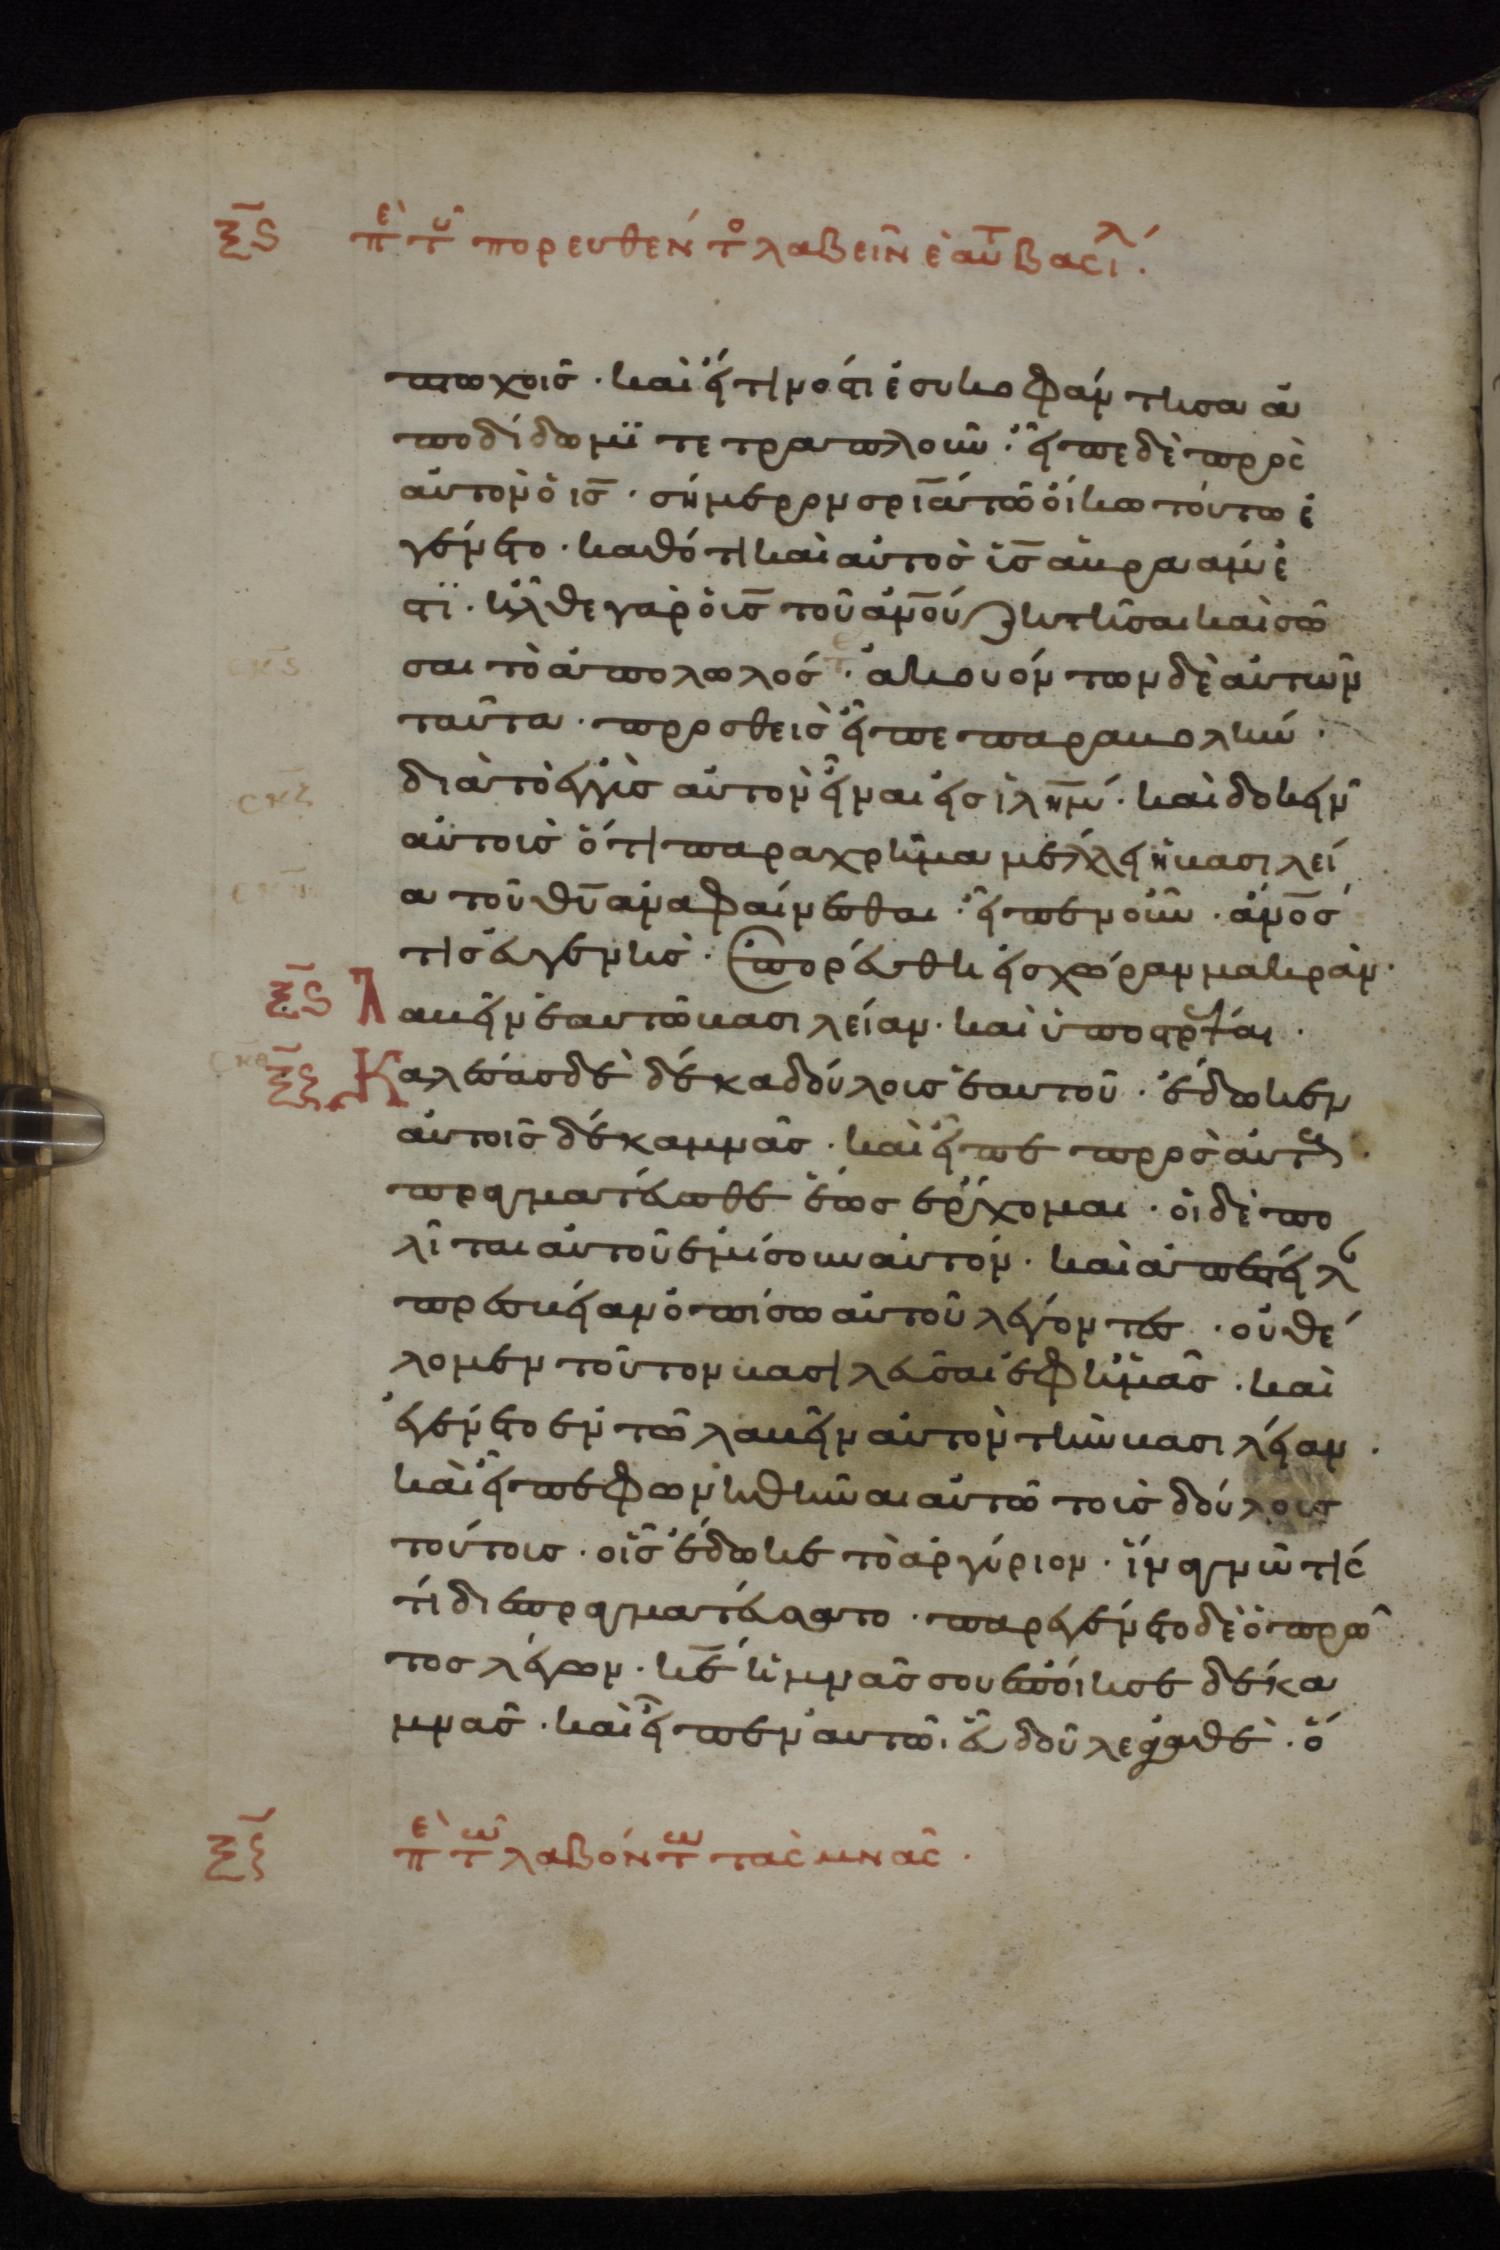 ξϛ πε τυ πορευθέντο λαβεῖν ἑαυτ βασιλ.
πτωχοῖς · καὶ εἴ τινός τι ἐσυκοφάντησα ἀ
ποδίδωμϊ τετραπλοῦν · εἶπε δὲ πρὸς
αὐτὸν ὁ ις · σήμερον σρια τῶ οἴκω τούτω ἐ
γένετο · καθότι καὶ αὐτὸς υς ἀβρααμ ἐ
στϊ · ἦλθε γὰρ ὁ υς τοῦ ανου ζητῆσαι καὶ σῶ
σκϛ σαι τὸ ἀπολωλός · ἀκουόντων δὲ αὐτῶν
ταῦτα · προσθεὶς εἶπε παραβολήν ·
σκζ διὰ τὸ ἐγγὺς αὐτὸν εἶναι εἰς ιλημ · καὶ δοκεῖν
αὐτοῖς ὅτι παραχρῆμα μέλλει ἡ βασιλεί
σκη α τοῦ θυ ἀναφαίνεσθαι · εἶπεν οὖν · ανος
τὶς εὐγενὴς · ἐπορεύθη εἰς χώραν μακρὰν ·
ξϛ λαβεῖν ἑαυτῶ βασιλείαν · καὶ ὑποστρέψαι ·
σκθ ξζ Καλέσας δὲ δέκα δούλοις ἑαυτοῦ · ἔδωκεν
αὐτοῖς δέκα μνᾶς · καὶ εἶπε πρὸς αὐτους ·
πραγματεύσασθε ἕως ἔρχομαι · οἱ δὲ πο
λῖται αὐτοῦ ἐμίσουν αὐτόν · καὶ ἀπέστειλ
πρεσβείαν ὀπίσω αὐτοῦ λέγοντες · οὐ θέ
λομεν τοῦτον βασιλεῦσαι ἐφ ἡμᾶς · καὶ
ἐγένετο ἐν τῶ λαβεῖν αὐτὸν τὴν βασιλείαν ·
καὶ εἶπε φωνηθῆναι αὐτῶ τοὶς δούλους
τούτοις · οἷς ἔδωκε τὸ ἀργύριον · ἵνα γνῶ τίς
τί διεπραγματεύσατο · παρεγένετο δὲ ὁ πρῶ
τος λέγων · κε ἡ μνᾶς σου ἐποίησε δέκα
μνᾶς · καὶ εἶπεν αὐτῶ · εὖ δοῦλε ἀγαθὲ · ὅ
ξζ πε τω λαβόντω τὰς μνᾶς ·